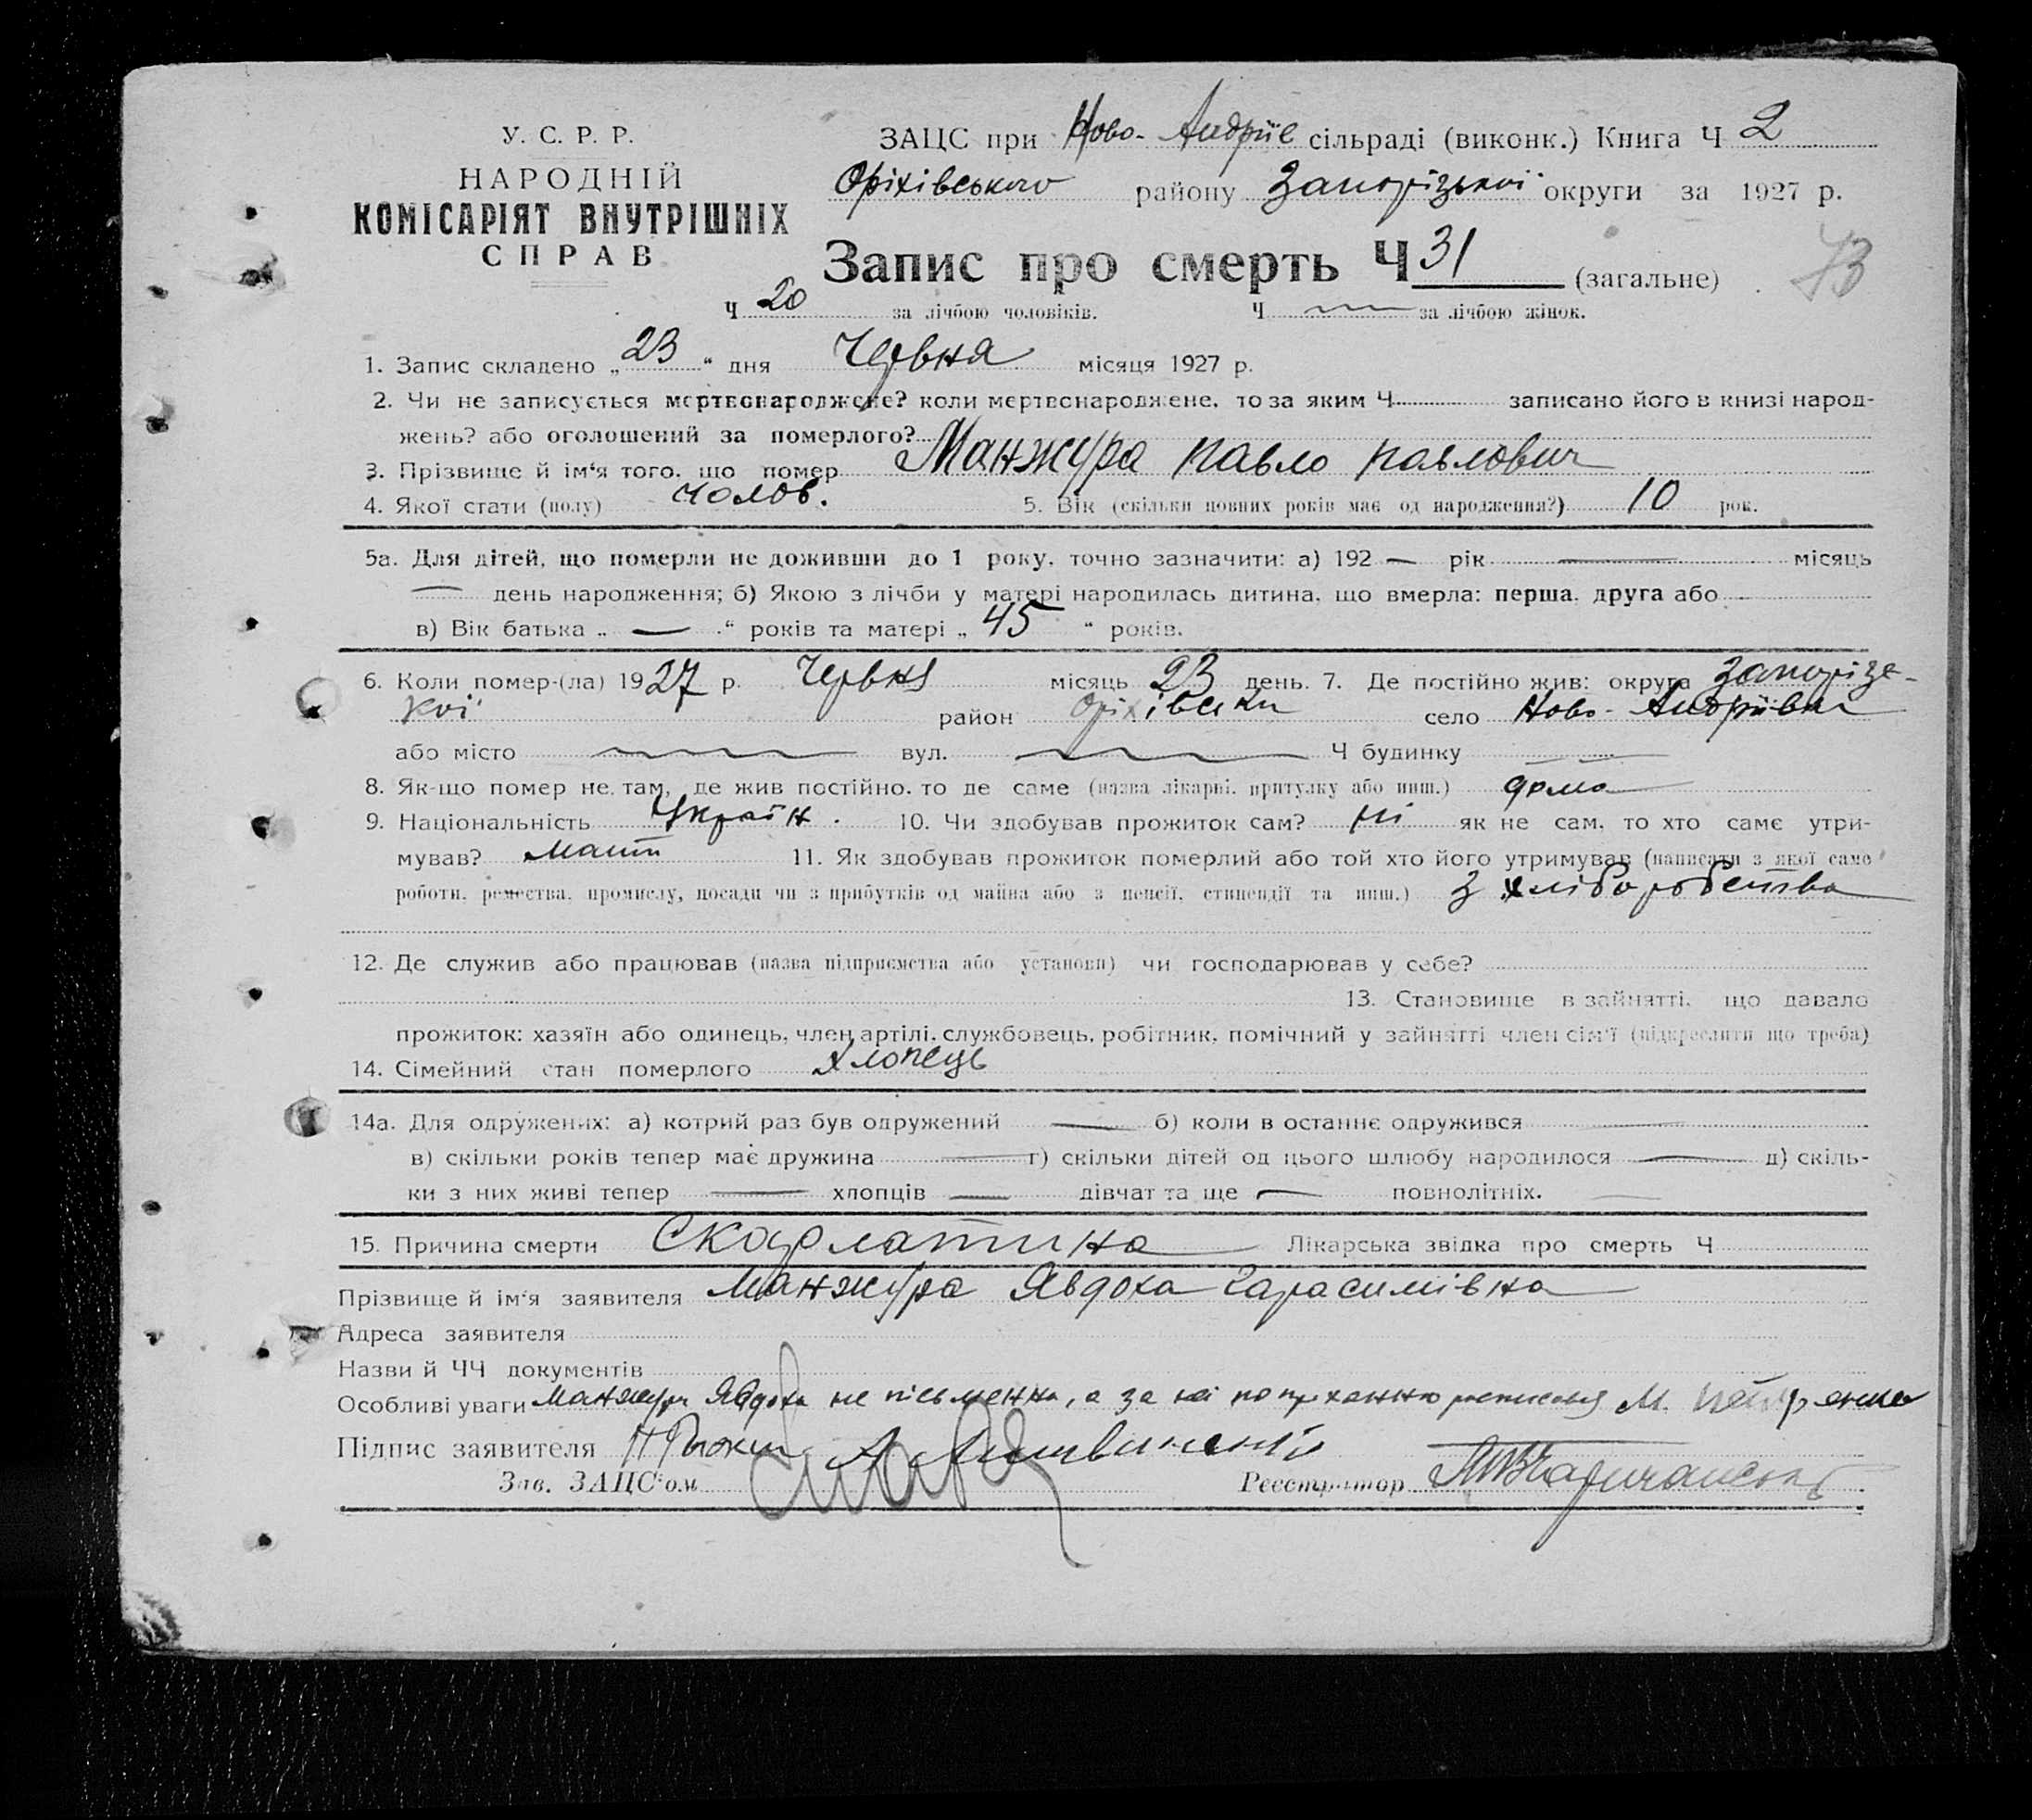 У. С. Р. Р.
НАРОДНІЙ
КОМІСАРІЯТ ВНУТРІШНІХ
СПРАВ
ЗАЦС при Ново-Андріїв сільраді (виконк.) Книга Ч 2
Оріхівського району Запорізької округи за 1927 р.
Запис про смерть Ч 31 (загальне)
73
Ч 20 за лічбою чоловіків. Ч за лічбою жінок.
1. Запис складено „ 23 “ дня Червня місяця 1927 р.
2. Чи не записується мертвонароджене? коли мертвонароджене, то за яким Ч записано його в книзі народ-
жень? або оголошений за померлого?
3. Прізвище й ім‘я того, що помер Манжура Павло Павлович
4. Якої стати (полу) чолов. 5. Вік (скільки повних років має од народження?) 10 рок.
5а. Для дітей, що померли не доживши до 1 року, точно зазначити: а) 192 — рік — місяць
— день народження; б) Якою з лічби у матері народилась дитина, що вмерла: перша, друга або
в) Вік батька „ — “ років та матері „ 45 “ років.
6. Коли помер-(ла) 1927 р. Червня місяць 23 день. 7. Де постійно жив: округа Запорізь-
кої район Оріхівськи село Ново-Андріївка
або місто вул. Ч будинку
8. Як-що помер не там, де жив постійно, то де саме (назва лікарні, притулку або инш.) дома
9. Національність Україн. 10. Чи здобував прожиток сам? ні як не сам, то хто саме утри-
мував? мати 11. Як здобував прожиток померлий або той хто його утримував (написати з якої саме
роботи, ремества, промислу, посади чи з прибутків од майна або з пенсії, стипендії та инш.) з хліборобства
12. Де служив або працював (назва підприємства або установи) чи господарював у себе?
13. Становище в зайнятті, що давало
прожиток: хазяїн або одинець, член артілі, службовець, робітник, помічний у зайнятті член сім‘ї (підкреслити що треба)
14. Сімейний стан померлого хлопець
14а. Для одружених: а) котрий раз був одружений — б) коли в останнє одружився —
в) скільки років тепер має дружина — г) скільки дітей од цього шлюбу народилося — д) скіль-
ки з них живі тепер — хлопців — дівчат та ще — повнолітніх.
15. Причина смерти Скарлатина Лікарська звідка про смерть Ч
Прізвище й ім‘я заявителя Манжура Явдоха Гарасимівна
Адреса заявителя
Назви й ЧЧ документів
Особливі уваги Манжура Явдоха не письменна, а за неї по проханню росписався М.
Підпис заявителя
Зав. ЗАЦС‘ом Реєстратор